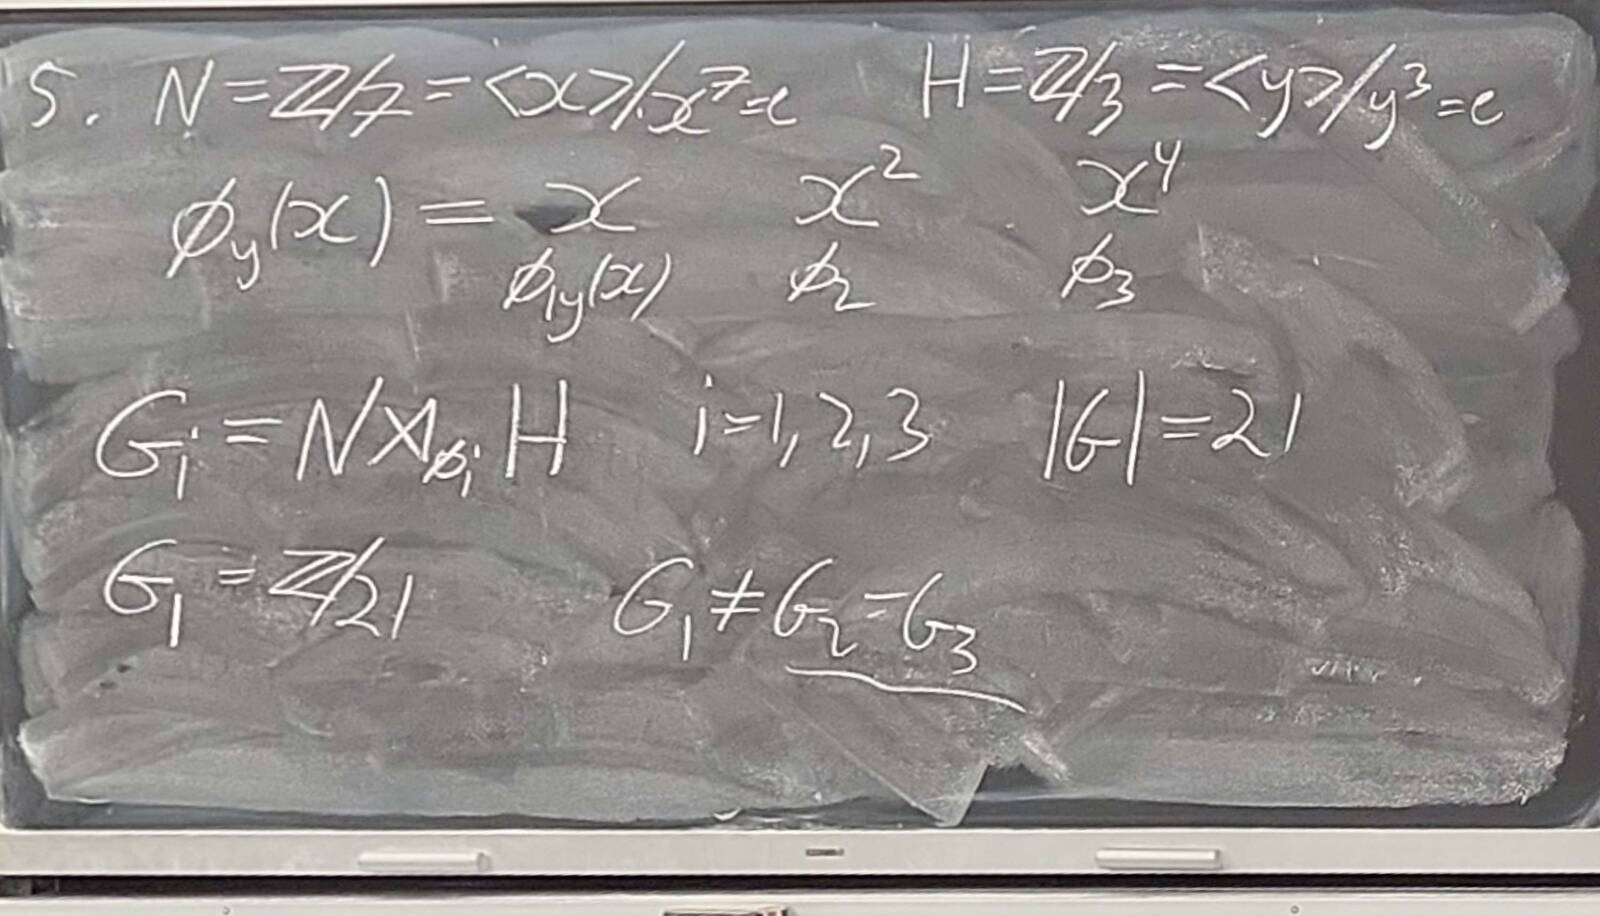 5. N = ℤ/7 = <x>/x⁷=e H = ℤ/3 = <y>/y³=e
ϕ_y(x) = x x² x⁴
ϕ_1y(x) ϕ₂ ϕ₃
G_i = N⋊_ϕ_i H i=1,2,3 |G|=21
G₁ = ℤ/21 G₁ ≠ G₂ = G₃